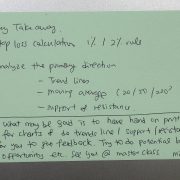 Key Takeaway.
Stop loss calculation 1% / 2% rule
Analyze the primary direction
- Trend lines
- moving averages (20/50/200)
- support & resistance
what may be good is to have hand on print
for charts & do trends line / support / resistance
for you to get feedback. Try to do potential b
opportunity etc. See you @ masterclass